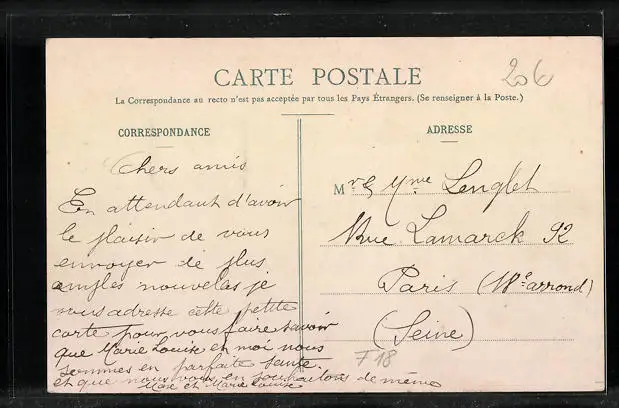 206
CARTE POSTALE
La Correspondance au recto n'est pas acceptée par tous les Pays Étrangers. (Se renseigner à la Poste.)
CORRESPONDANCE
Chers amis
En attendant d'avoir
le plaisir de vous
envoyer de plus
amples nouvelles je
vous adresse cette petite
carte pour vous faire savoir
que Marie Louise et moi nous
sommes en parfaite santé.
et que nous vous en souhaitons de même
Marie Louise
ADRESSE
Mr & Mme Lenglet
Rue Lamarck 92
Paris (18e arrond)
(Seine)
F18